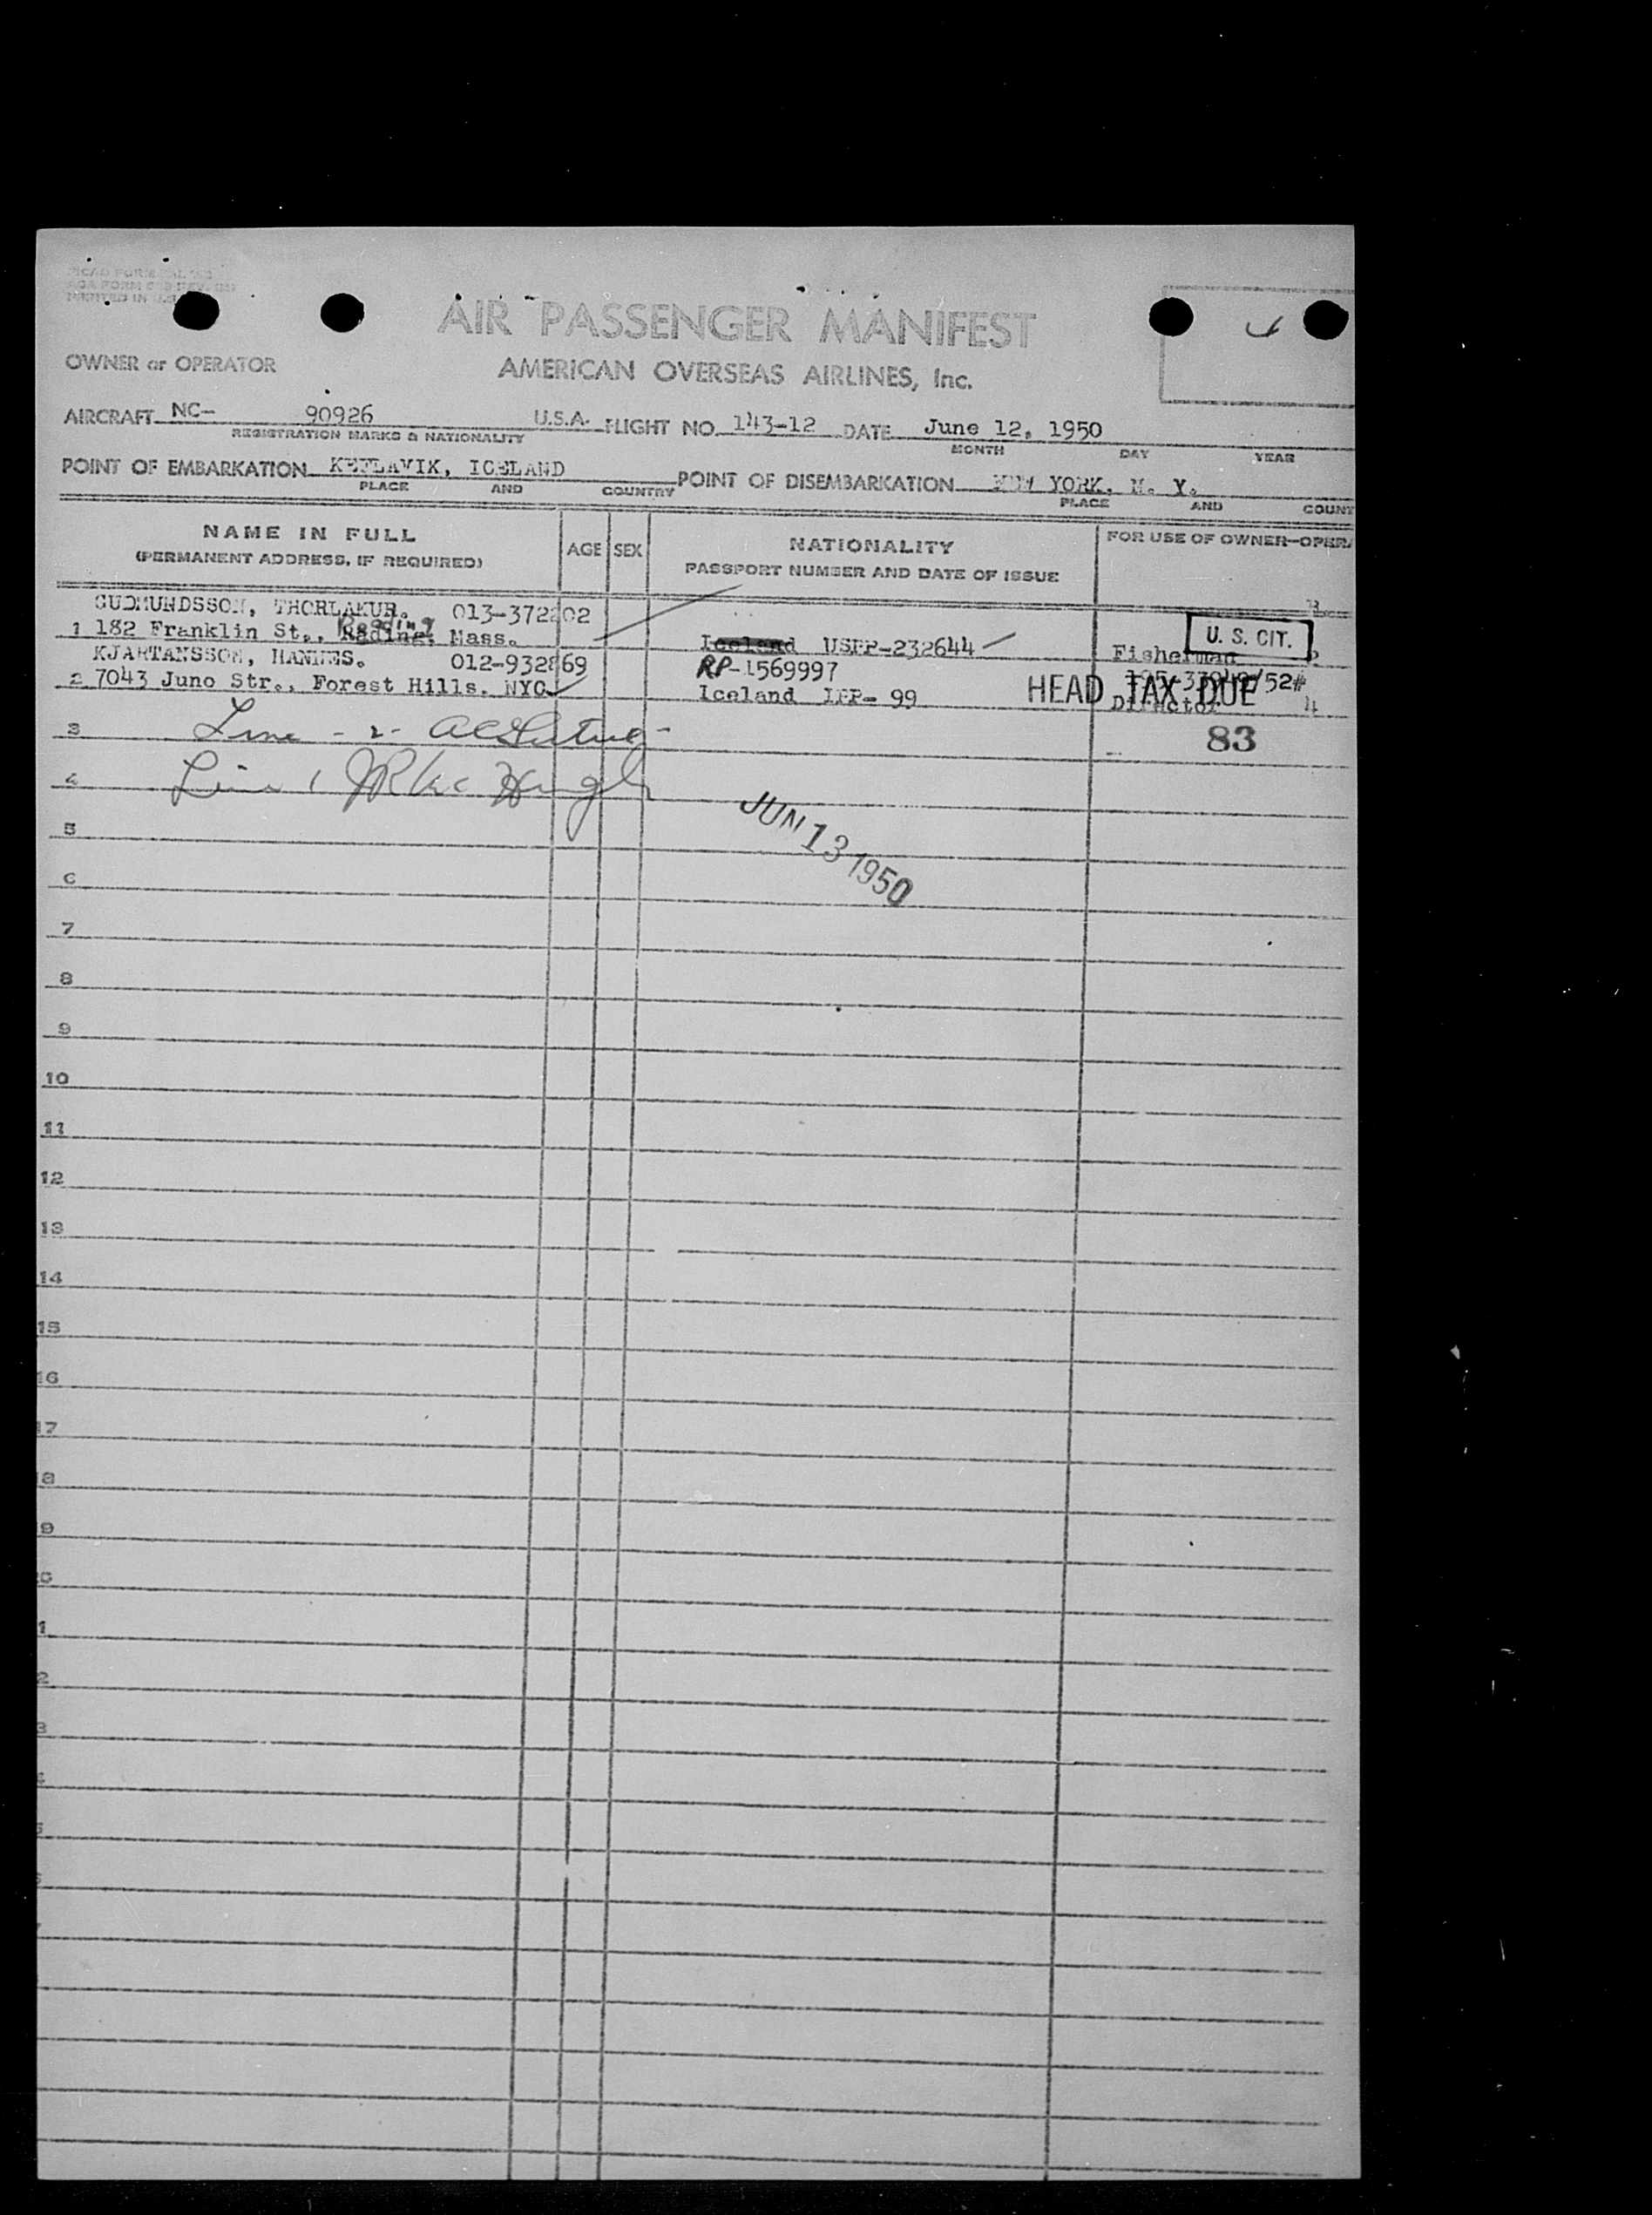 AIR PASSENGER MANIFEST
OWNER or OPERATOR
AMERICAN OVERSEAS AIRLINES, Inc.
AIRCRAFT NC- 90926 U.S.A. FLIGHT NO. 143-12 DATE June 12, 1950
REGISTRATION MARKS & NATIONALITY MONTH DAY YEAR
POINT OF EMBARKATION KEFLAVIK, ICELAND POINT OF DISEMBARKATION NEW YORK, N. Y.
PLACE AND COUNTRY PLACE AND COUNT
NAME IN FULL AGE SEX NATIONALITY FOR USE OF OWNER-OPERA
(PERMANENT ADDRESS, IF REQUIRED) PASSPORT NUMBER AND DATE OF ISSUE
GUDMUNDSSON, THORLAKUR. 013-372202
Reading
1 182 Franklin St., Rading, Mass. Iceland USPP-232644 Fisherman U. S. CIT.
KJARTANSSON, HANNES. 012-932869 RP-1569997
2 7043 Juno Str., Forest Hills. NYC Iceland IPP- 99 Director 4
HEAD TAX DUE
83
3 Line - 2 -
4 Line 1
JUN 13 1950
5
6
7
8
9
10
11
12
13
14
15
16
17
8
9
0
1
2
3